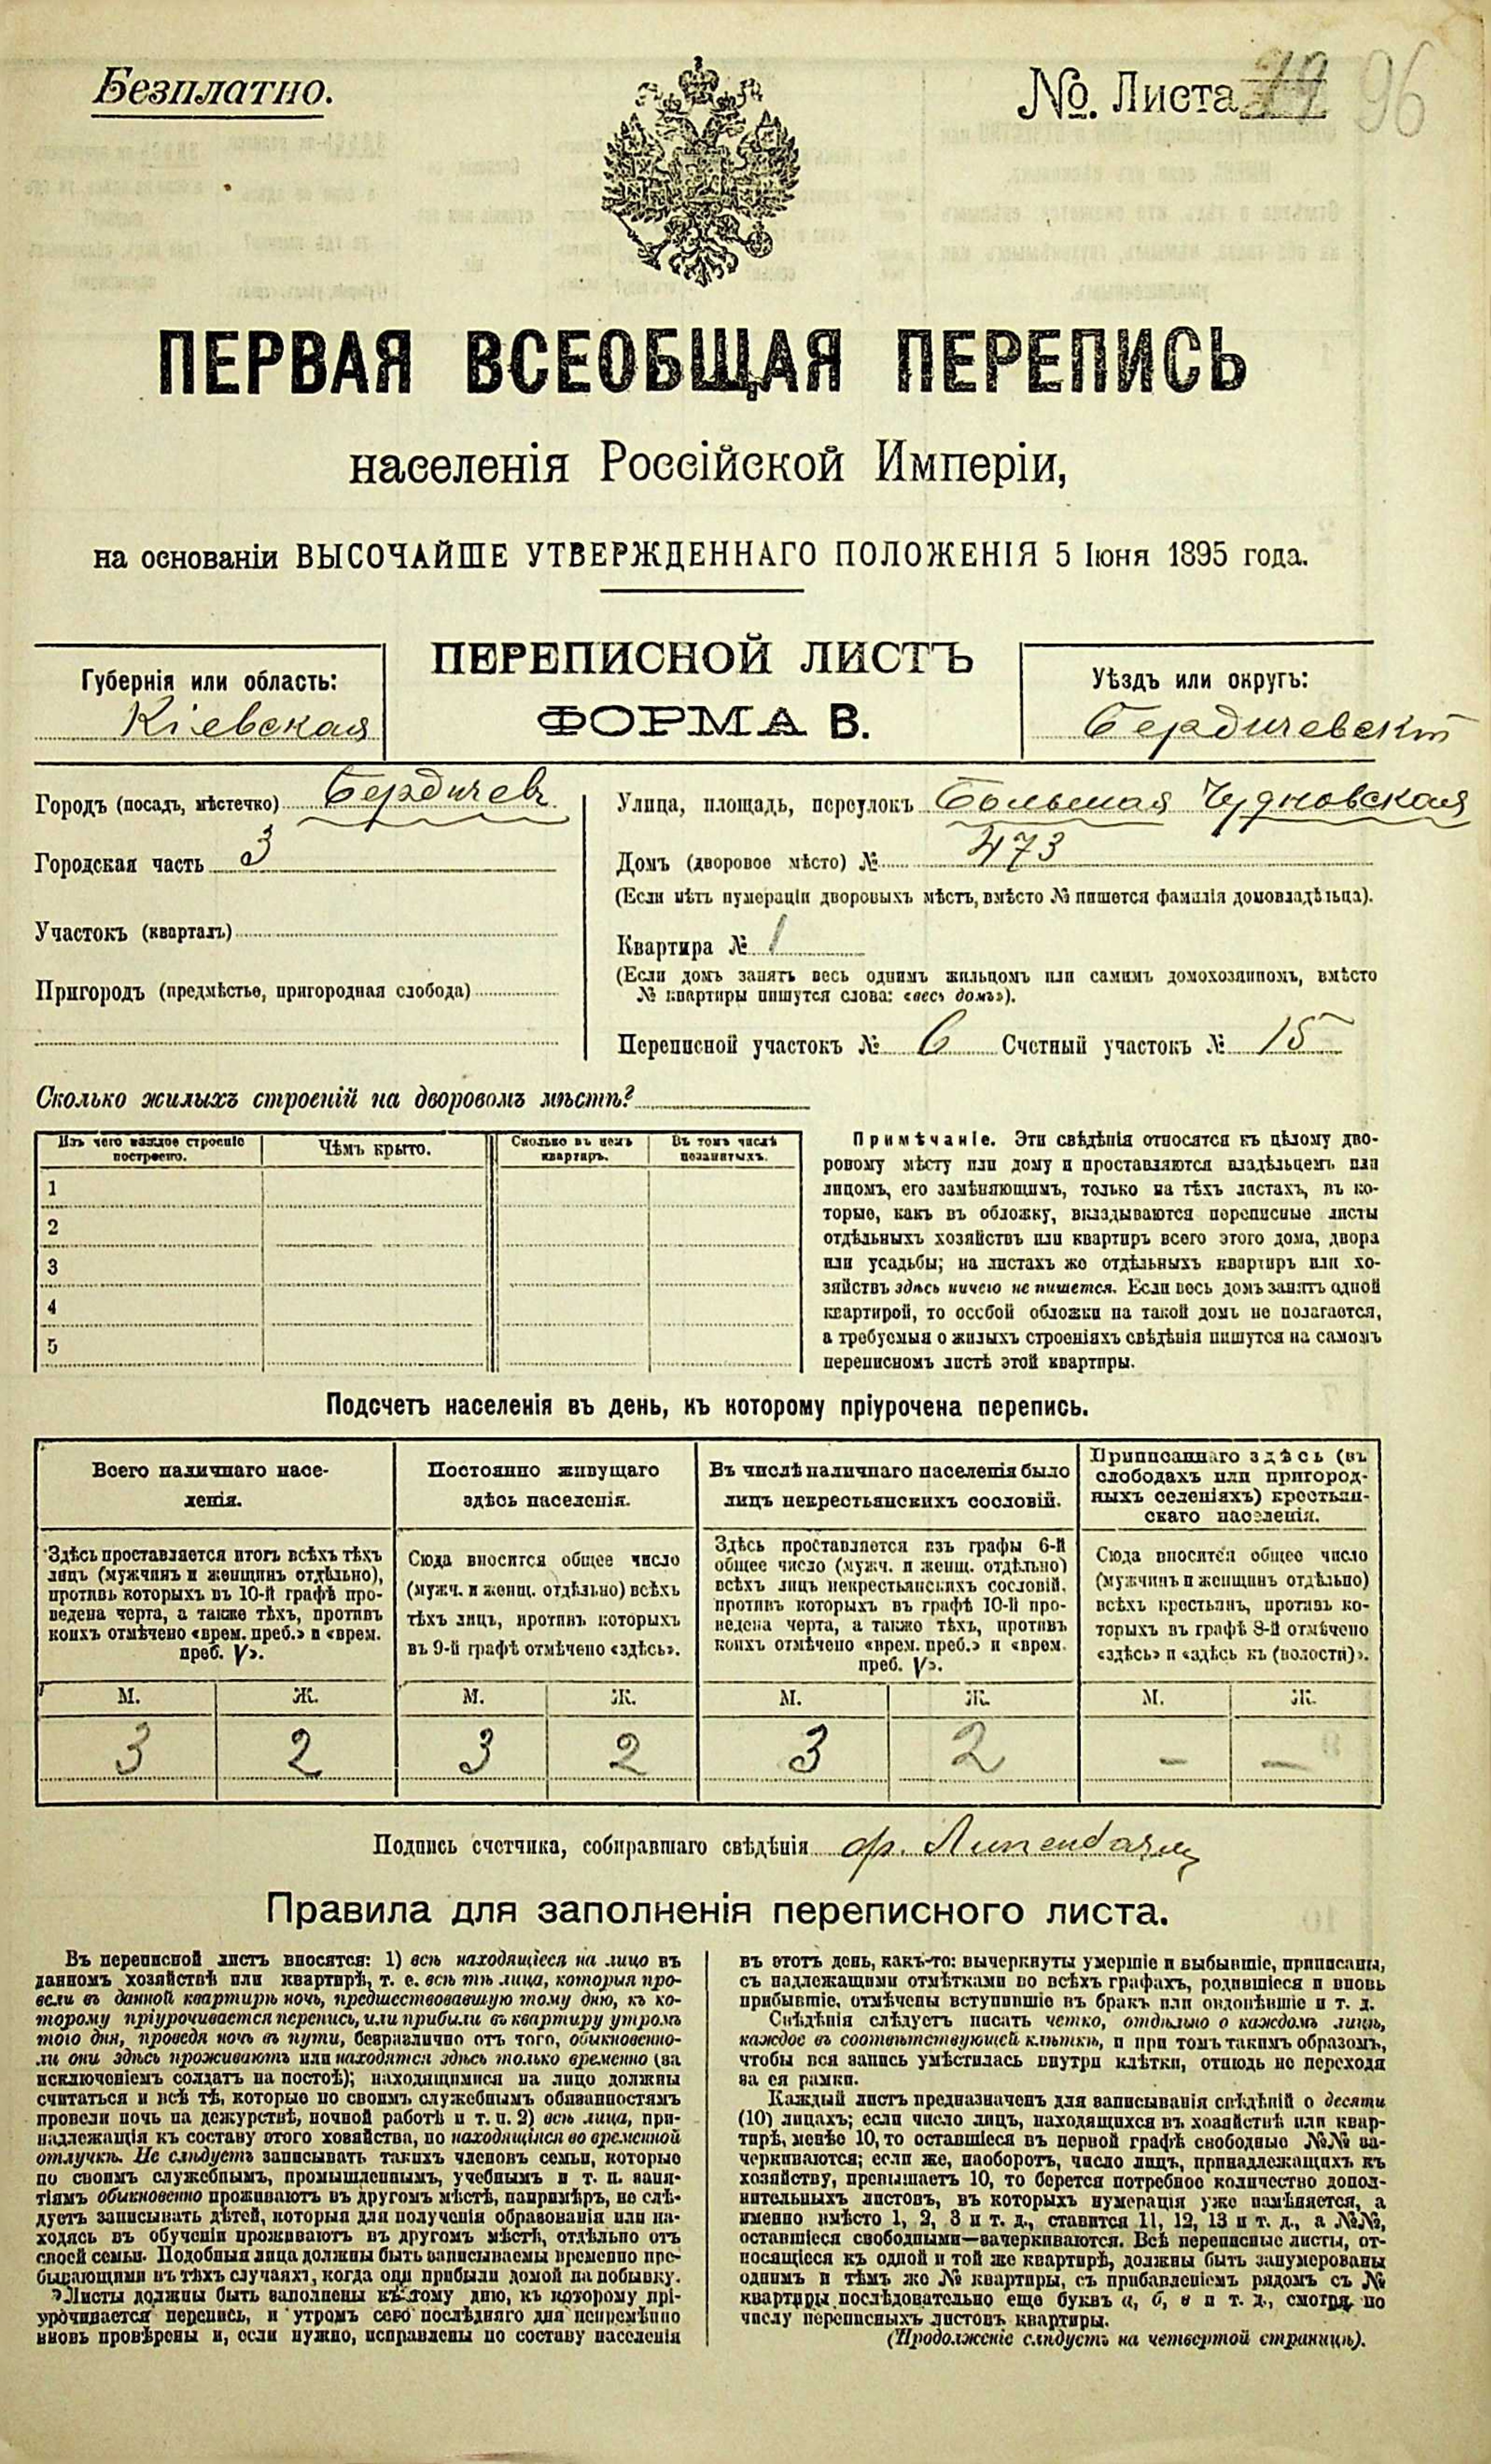 Безплатно.
№. Листа 96
ПЕРВАЯ ВСЕОБЩАЯ ПЕРЕПИСЬ
населенія Россійской Имперіи,
на основаніи ВЫСОЧАЙШЕ УТВЕРЖДЕННАГО ПОЛОЖЕНІЯ 5 Іюня 1895 года.
ПЕРЕПИСНОЙ ЛИСТЪ
ФОРМА В.
Губернія или область:
Кіевская
Уѣздъ или округъ:
Бердичевскій
Городъ (посадъ, мѣстечко) Бердичевъ
Городская часть 3
Участокъ (кварталъ)
Пригородъ (предмѣстье, пригородная слобода)
Улица, площадь, переулокъ Большая Чудновская
Домъ (дворовое мѣсто) № 473
(Если нѣтъ нумераціи дворовыхъ мѣстъ, вмѣсто № пишется фамилія домовладѣльца).
Квартира № 1
(Если домъ занятъ весь однимъ жильцомъ или самимъ домохозяиномъ, вмѣсто
№ квартиры пишутся слова: «весь домъ»).
Переписной участокъ № 6 Счетный участокъ № 15
Сколько жилыхъ строеній на дворовомъ мѣстѣ?
Изъ чего каждое строеніе
построено.
Чѣмъ крыто.
Сколько въ немъ
квартиръ.
Въ томъ числѣ
незанятыхъ.
1
2
3
4
5
Примѣчаніе. Эти свѣдѣнія относятся къ цѣлому дво-
ровому мѣсту или дому и проставляются владѣльцемъ или
лицомъ, его замѣняющимъ, только на тѣхъ листахъ, въ ко-
торые, какъ въ обложку, вкладываются переписные листы
отдѣльныхъ хозяйствъ или квартиръ всего этого дома, двора
или усадьбы; на листахъ же отдѣльныхъ квартиръ или хо-
зяйствъ здѣсь ничего не пишется. Если весь домъ занятъ одной
квартирой, то особой обложки на такой домъ не полагается,
а требуемыя о жилыхъ строеніяхъ свѣдѣнія пишутся на самомъ
переписномъ листѣ этой квартиры.
Подсчетъ населенія въ день, къ которому пріурочена перепись.
Всего наличнаго насе-
ленія.
Здѣсь проставляется итогъ всѣхъ тѣхъ
лицъ (мужчинъ и женщинъ отдѣльно),
противъ которыхъ въ 10-й графѣ про-
ведена черта, а также тѣхъ, противъ
коихъ отмѣчено «врем. преб.» и «врем.
преб. V».
Постоянно живущаго
здѣсь населенія.
Сюда вносится общее число
(мужч. и женщ. отдѣльно) всѣхъ
тѣхъ лицъ, противъ которыхъ
въ 9-й графѣ отмѣчено «здѣсь».
Въ числѣ наличнаго населенія было
лицъ некрестьянскихъ сословій.
Здѣсь проставляется изъ графы 6-й
общее число (мужч. и женщ. отдѣльно)
всѣхъ лицъ некрестьянскихъ сословій,
противъ которыхъ въ графѣ 10-й про-
ведена черта, а также тѣхъ, противъ
коихъ отмѣчено «врем. преб.» и «врем.
преб. V».
Приписаннаго здѣсь (въ
слободахъ или пригород-
ныхъ селеніяхъ) крестьян-
скаго населенія.
Сюда вносится общее число
(мужчинъ и женщинъ отдѣльно)
всѣхъ крестьянъ, противъ ко-
торыхъ въ графѣ 8-й отмѣчено
«здѣсь» и «здѣсь къ (волости)».
М. Ж. М. Ж. М. Ж. М. Ж.
3 2 3 2 3 2 - -
Подпись счетчика, собиравшаго свѣдѣнія
Правила для заполненія переписного листа.
Въ переписной листъ вносятся: 1) всѣ находящіеся на лицо въ
данномъ хозяйствѣ или квартирѣ, т. е. всѣ тѣ лица, которыя про-
вели въ данной квартирѣ ночь, предшествовавшую тому дню, къ ко-
торому пріурочивается перепись, или прибыли въ квартиру утромъ
того дня, проведя ночь въ пути, безразлично отъ того, обыкновенно-
ли они здѣсь проживаютъ или находятся здѣсь только временно (за
исключеніемъ солдатъ на постоѣ); находящимися на лицо должны
считаться и всѣ тѣ, которые по своимъ служебнымъ обязанностямъ
провели ночь на дежурствѣ, ночной работѣ и т. п. 2) всѣ лица, при-
надлежащія къ составу этого хозяйства, но находящіяся во временной
отлучкѣ. Не слѣдуетъ записывать такихъ членовъ семьи, которые
по своимъ служебнымъ, промышленнымъ, учебнымъ и т. п. заня-
тіямъ обыкновенно проживаютъ въ другомъ мѣстѣ, напримѣръ, не слѣ-
дуетъ записывать дѣтей, которыя для полученія образованія или на-
ходясь въ обученіи проживаютъ въ другомъ мѣстѣ, отдѣльно отъ
своей семьи. Подобныя лица должны быть записываемы временно пре-
бывающими въ тѣхъ случаяхъ, когда они прибыли домой на побывку.
Листы должны быть заполнены къ тому дню, къ которому прі-
урочивается перепись, и утромъ сего послѣдняго дня непремѣнно
вновь провѣрены и, если нужно, исправлены по составу населенія
въ этотъ день, какъ-то: вычеркнуты умершіе и выбывшіе, приписаны,
съ надлежащими отмѣтками во всѣхъ графахъ, родившіеся и вновь
прибывшіе, отмѣчены вступившіе въ бракъ или овдовѣвшіе и т. д.
Свѣдѣнія слѣдуетъ писать четко, отдѣльно о каждомъ лицѣ,
каждое въ соотвѣтствующей клѣткѣ, и при томъ такимъ образомъ,
чтобы вся запись умѣстилась внутри клѣтки, отнюдь не переходя
за ея рамки.
Каждый листъ предназначенъ для записыванія свѣдѣній о десяти
(10) лицахъ; если число лицъ, находящихся въ хозяйствѣ или квар-
тирѣ, менѣе 10, то оставшіеся въ первой графѣ свободные №№ за-
черкиваются; если же, наоборотъ, число лицъ, принадлежащихъ къ
хозяйству, превышаетъ 10, то берется потребное количество допол-
нительныхъ листовъ, въ которыхъ нумерація уже измѣняется, а
именно вмѣсто 1, 2, 3 и т. д., ставится 11, 12, 13 и т. д., а №№,
оставшіеся свободными—зачеркиваются. Всѣ переписные листы, от-
носящіеся къ одной и той же квартирѣ, должны быть занумерованы
однимъ и тѣмъ же № квартиры, съ прибавленіемъ рядомъ съ №
квартиры послѣдовательно еще буквъ а, б, в и т. д., смотря по
числу переписныхъ листовъ квартиры.
(Продолженіе слѣдуетъ на четвертой страницѣ).